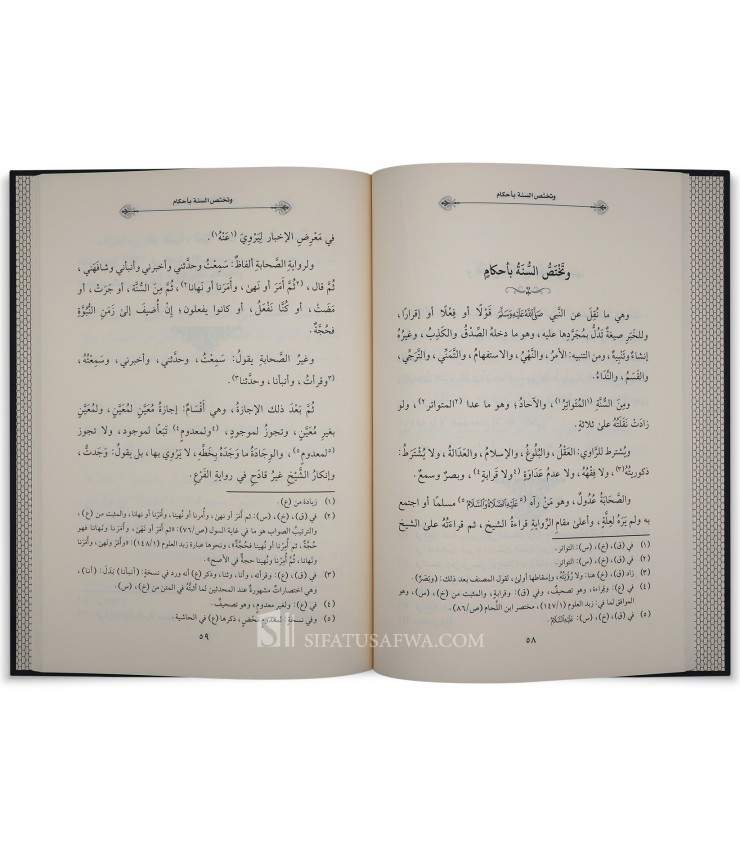 وتختص السنة بأحكام
وَتَخْتَصُّ السُّنَةُ بأحكامٍ
وهي ما نُقِلَ عن النَّبي صَلَّى اللهُ عَلَيْهِ وَسَلَّمَ قَوْلًا أو فِعْلًا أو إقرارًا،
وللخَبَرِ صيغةٌ تَدُلُّ بمُجَرَّدِها عليه، وهو ما دخلهُ الصِّدْقُ والكَذِبُ، وغيرُهُ
إنشاءٌ وتَنْبِيهٌ، ومن التنبيه: الأمرُ، والنَّهْيُ، والاستفهامُ، والتَّمَنِّي، والتَّرَجِّي،
والقَسَمُ، والنِّداءُ.
ومِنَ السُّنَّةِ (١المُتَواتِرُ١)، والآحادُ؛ وهو ما عدا (٢المتواتر٢)، ولو
زادَتْ نَقَلَتُهُ على ثلاثةٍ.
ويُشترط للرَّاوي: العَقْلُ، والبُلُوغُ، والإسلامُ، والعَدَالةُ، ولا يُشْتَرَطُ:
ذكوريتُهُ(٣)، ولا فِقْهُهُ، ولا عدمُ عَدَاوَةٍ (٤ولا قرابةٍ٤)، وبصرٌ وسمعٌ.
والصَّحَابَةُ عُدُولٌ، وهو مَنْ رآه (٥عَلَيْهِ الصَّلَاةُ وَالسَّلَامُ٥) مسلمًا أو اجتمع
به ولم يَرَهُ لِعِلَّةٍ، وأعلى مقامِ الرِّوايةِ قراءةُ الشيخ، ثم قراءتُهُ على الشيخ
(١) في (ق)، (خ)، (س): التواتر.
(٢) في (ق)، (خ)، (س): التواتر.
(٣) زاد (ق)، (خ) هنا: ولا رُؤْيَتُهُ، وإسقاطها أولى، لقول المصنف بعد ذلك: (وبَصَرٌ).
(٤) في (ع): وقراءة، وهو تصحيف، وفي (ق): وقرابةٍ، والمثبت من (خ)، (س)، وهو
الموافق لما في: زبد العلوم (١٤٧/١)، مختصر ابن اللَّحام (ص/٨٦).
(٥) في (ق)، (خ)، (س): عَلَيْهِ السَّلَامُ.
٥٨
وتختص السنة بأحكام
في مَعْرِضِ الإخبارِ لِيَرْوِيَ (١عَنْهُ١).
ولروايةِ الصَّحابةِ ألفاظٌ: سَمِعْتُ وحدَّثني وأخبرني وأنبأني وشافهَني،
ثُمَّ قال، (٢ثُمَّ أَمَرَ أو نَهىٰ، وأَمَرَنا أو نَهَانا٢)، ثُمَّ مِنَ السُّنَّة، أو جَرَتْ، أو
مَضَتْ، أو كُنَّا نَفْعَلُ، أو كانوا يفعلون؛ إنْ أُضيفَ إلىٰ زَمَنِ النُّبُوَّةِ
فحُجَّةٌ.
وغيرُ الصَّحابةِ يقولُ: سَمِعْتُ، وحدَّثني، وأخبرني، وسَمِعْتُهُ،
(٣وقرأتُ، وأنبأنا، وحدَّثنا٣).
ثُمَّ بَعْدَ ذلك الإجازةُ، وهي أَقْسَامٌ: إجازةُ مُعَيَّنٍ لمُعَيَّنٍ، ولمُعَيَّنٍ
بغيرِ مُعَيَّنٍ، وتجوز لموجودٍ، (٤ولمعدومٍ٤) تَبَعًا لموجود، ولا تجوز
(٥لمعدومٍ٥)، والوِجَادَةُ ما وَجَدَهُ بِخَطِّهِ، لا يَرْوِي بها، بل يقولُ: وَجَدتُّ،
وإنكارُ الشَّيْخِ غيرُ قادحٍ في روايةِ الفَرْعِ.
(١) زيادة من (ع).
(٢) في (ق)، (خ)، (س): ثم أَمَرَ أو نهىٰ، وأُمِرنا أو نُهينا، وأَمَرَنا أو نهانا، والمثبت من (ع)،
والترتيبُ الصواب هو ما في غاية السول (ص/٧٦): «ثم أَمَرَ أو نَهَىٰ، وأَمَرَنا ونَهانا فهو
حُجَّة، ثم أُمِرْنا ونُهينا فحُجَّة»، ونحوها عبارة زبد العلوم (١٤٨/١): «وأَمَرَ ونهىٰ، وأَمَرَنا
ونَهانا، ثُمَّ أُمِرْنا ونُهينا حجةٌ في الأصح».
(٣) في (ق)، (ع): وقرأته، وأنا، وثنا، وذكر (ع) أنه ورد في نسخةٍ: (أنبأنا) بَدَلَ: (أنا)،
وهي اختصاراتٌ مشهورةٌ عند المحدثين لما أثبتُّهُ في المتن من (خ)، (س).
(٤) في (ق)، (ع): ولغير معدومٍ، وهو تصحيفٌ.
(٥) وفي نسخةٍ: لمعدومٍ مَحْضٍ، ذكرها (ع) في الحاشية.
٥٩
SIFATUSAFWA.COM